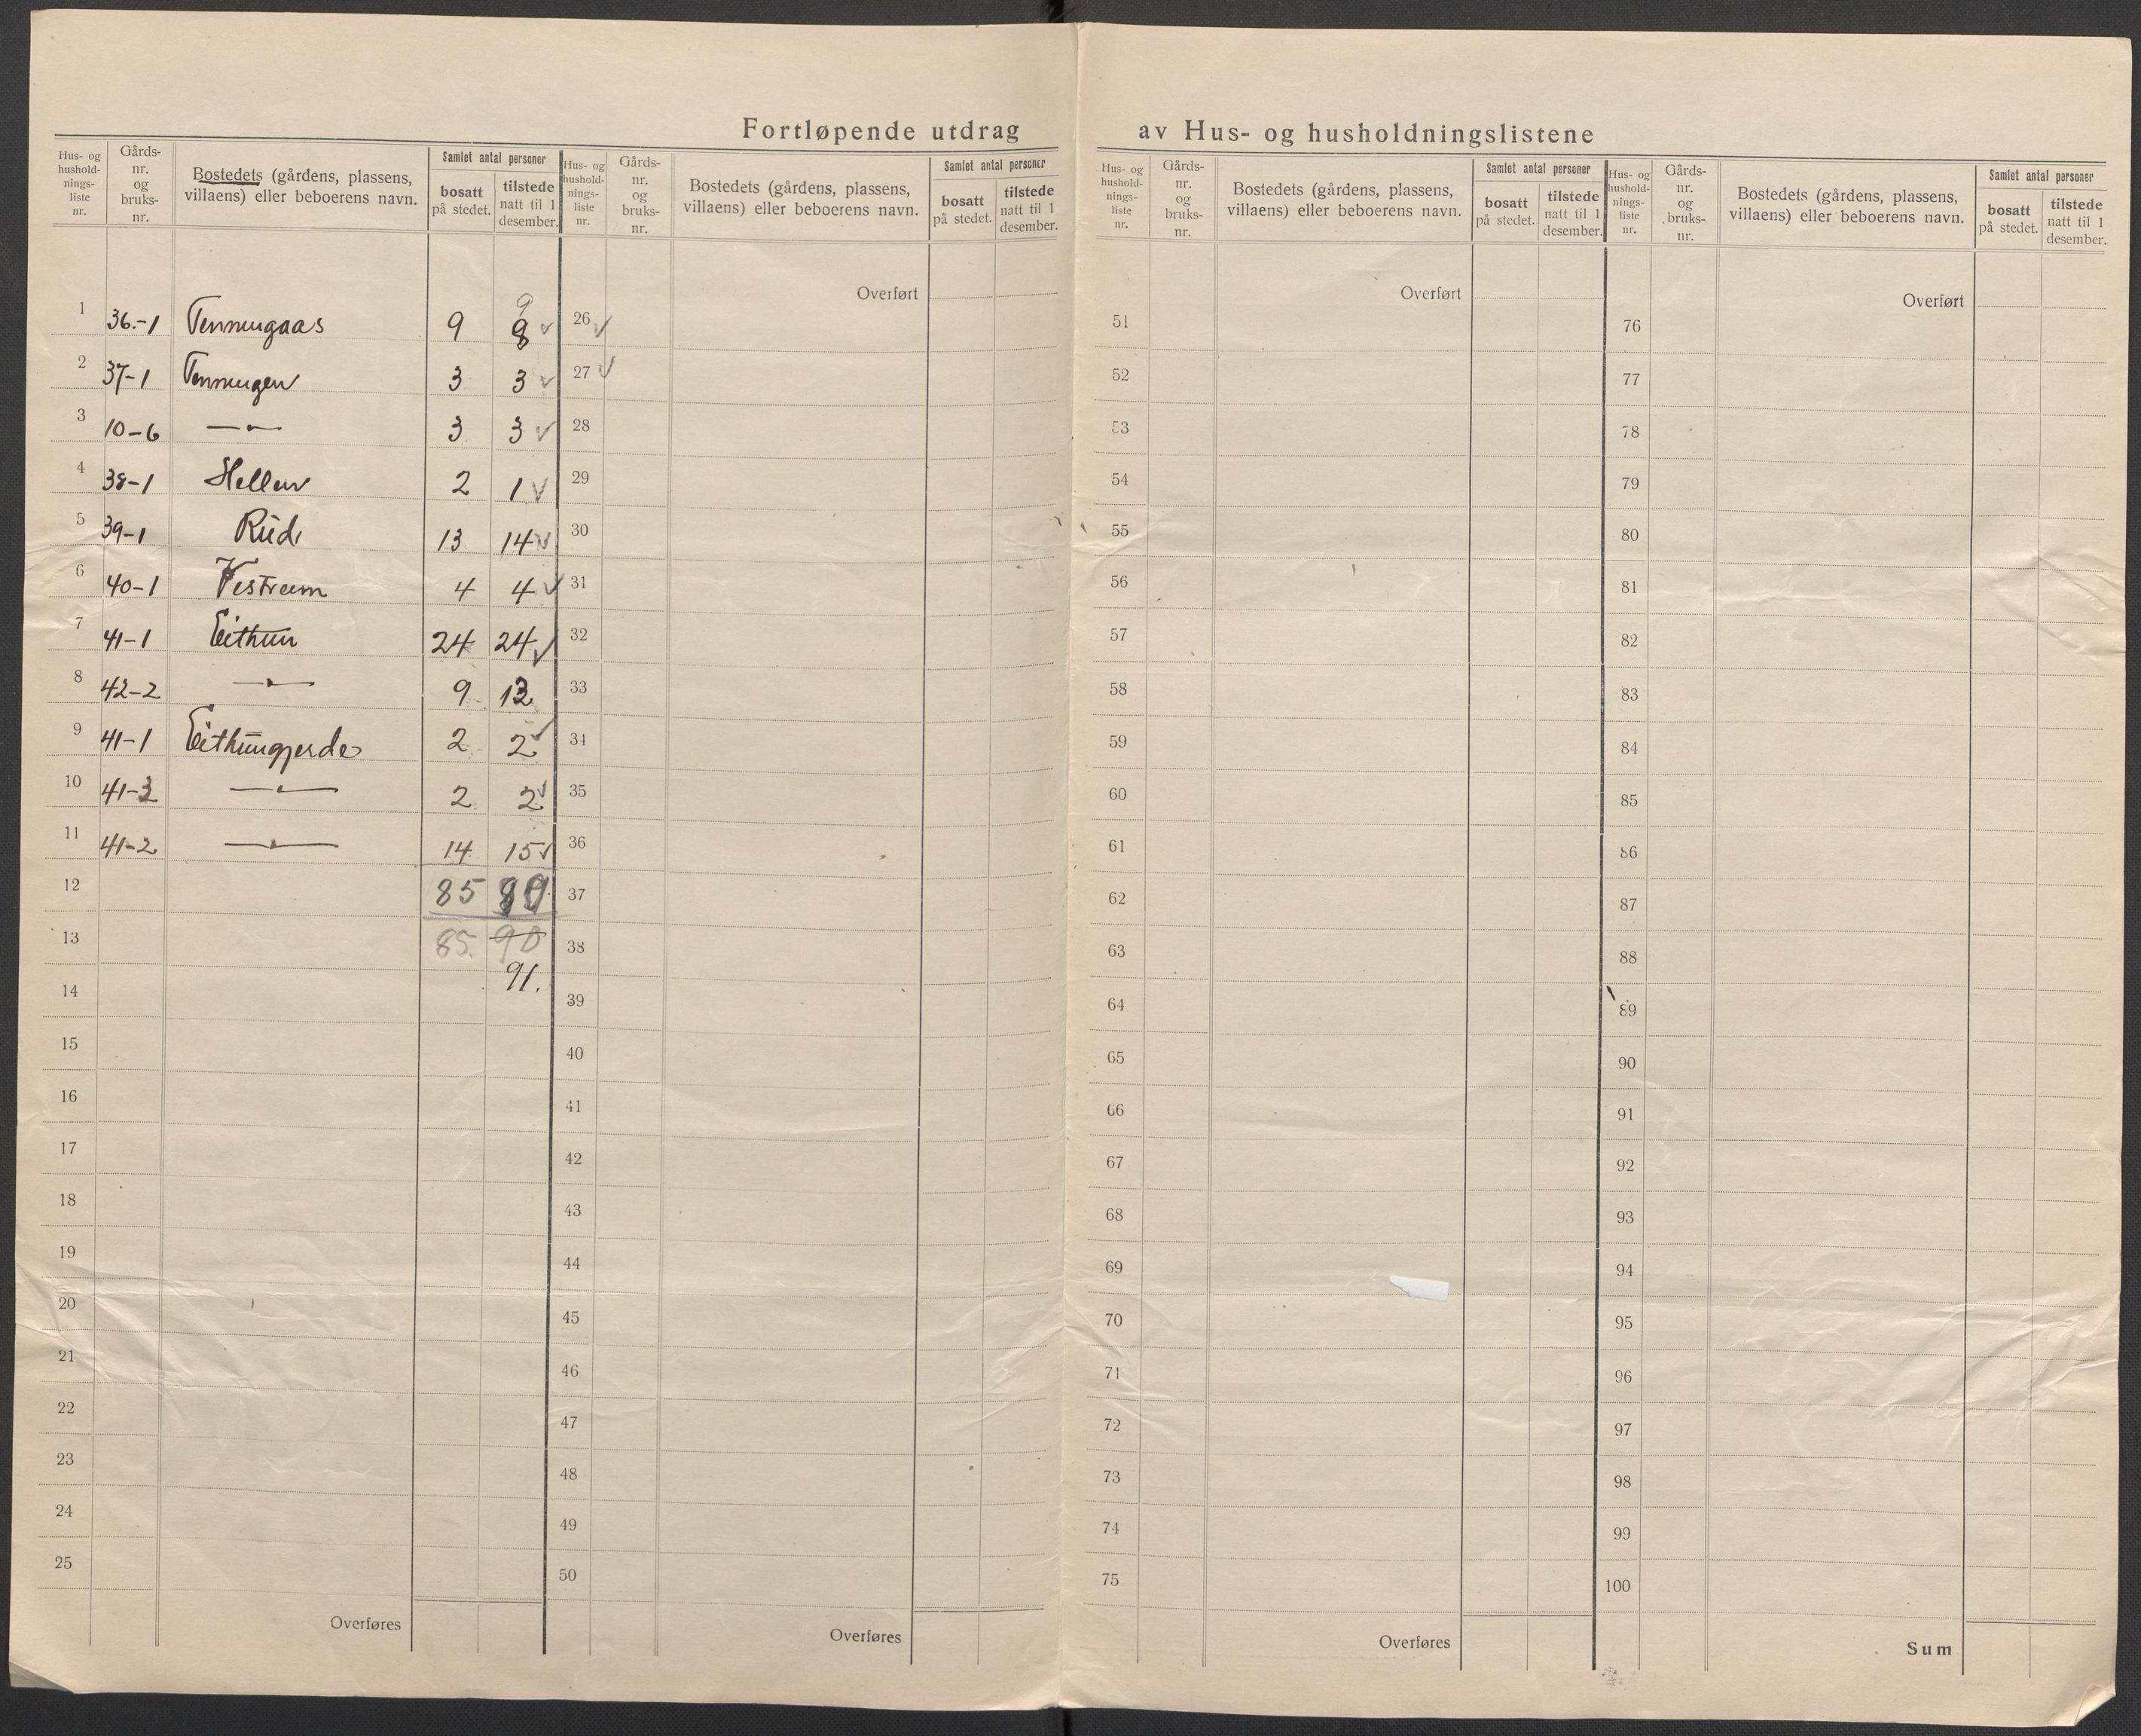 Fortløpende utdrag av Hus- og husholdningslistene
Hus- og hushold-nings-liste nr. Gårds-nr. og bruks-nr. Bostedets (gårdens, plassens, villaens) eller beboerens navn. Samlet antal personer bosatt på stedet. tilstede natt til 1 desember.
Hus- og hushold-nings-liste nr. Gårds-nr. og bruks-nr. Bostedets (gårdens, plassens, villaens) eller beboerens navn. Samlet antal personer bosatt på stedet. tilstede natt til 1 desember.
Hus- og hushold-nings-liste nr. Gårds-nr. og bruks-nr. Bostedets (gårdens, plassens, villaens) eller beboerens navn. Samlet antal personer bosatt på stedet. tilstede natt til 1 desember.
Hus- og hushold-nings-liste nr. Gårds-nr. og bruks-nr. Bostedets (gårdens, plassens, villaens) eller beboerens navn. Samlet antal personer bosatt på stedet. tilstede natt til 1 desember.
9
1 36.-1 Tennungaas 9 8 ✓
2 37-1 Tennungen 3 3 ✓
3 10-6 —〃— 3 3 ✓
4 38-1 Hellen 2 1 ✓
5 39-1 Rud 13 14 ✓
6 40-1 Vestrem 4 4 ✓
7 41-1 Eithun 24 24 ✓
8 42-2 —〃— 9 13
9 41-1 Eithungjerde 2 2 ✓
10 41-3 —〃— 2 2 ✓
11 41-2 —〃— 14 15 ✓
12 85
13 85. 90
91.
14
15
16
17
18
19
20
21
22
23
24
25
Overføres
Overført
26 ✓
27 ✓
28
29
30
31
32
33
34
35
36
37
38
39
40
41
42
43
44
45
46
47
48
49
50
Overføres
Overført
51
52
53
54
55
56
57
58
59
60
61
62
63
64
65
66
67
68
69
70
71
72
73
74
75
Overføres
Overført
76
77
78
79
80
81
82
83
84
85
86
87
88
89
90
91
92
93
94
95
96
97
98
99
100
Sum